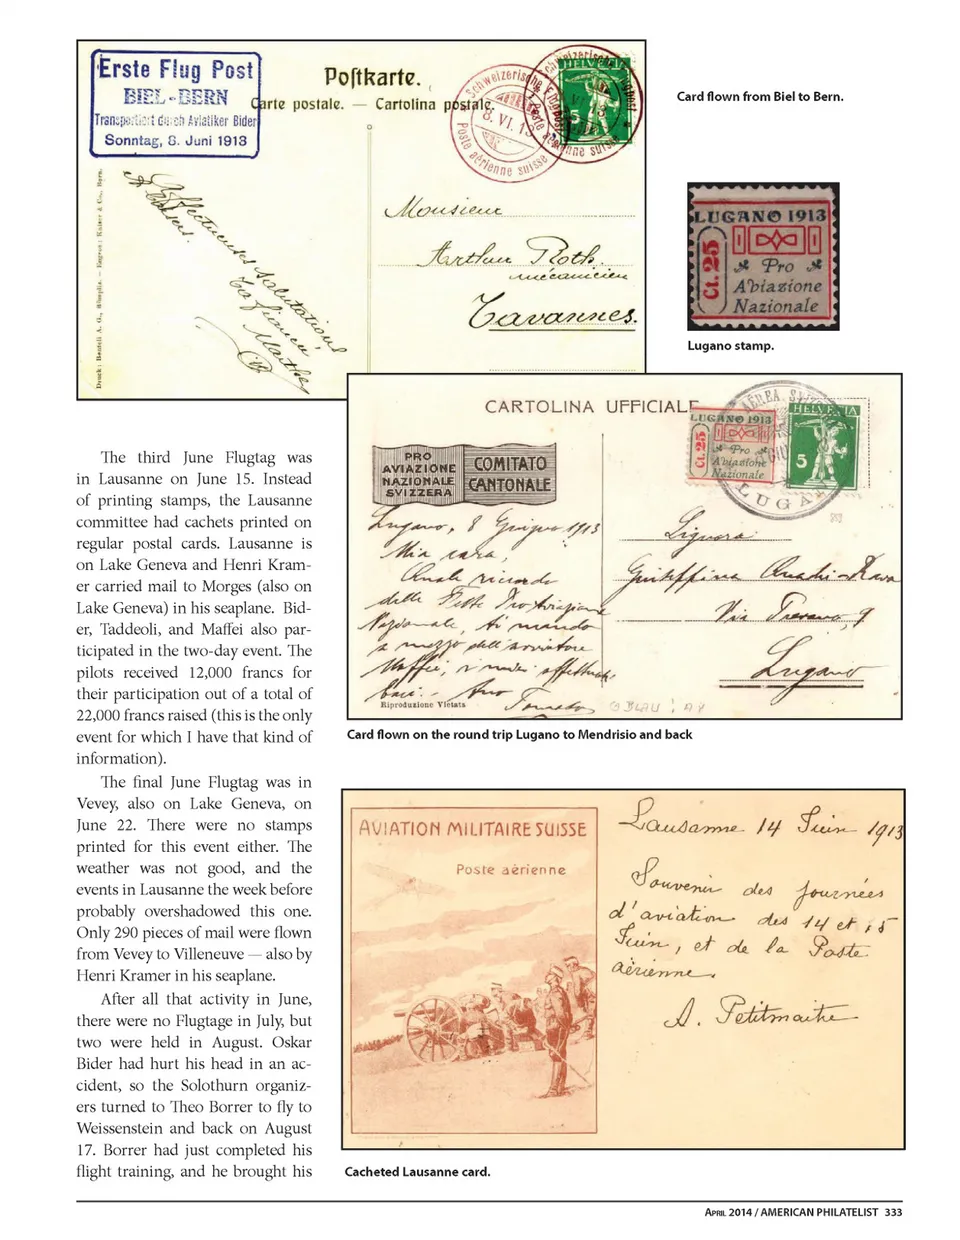 Erste Flug Post
BIEL-BERN
Transportiert durch Aviatiker Bider
Sonntag, 8. Juni 1913
Postkarte.
Carte postale. — Cartolina postale.
Schweizerische Flugpost
8. VI. 13
Poste aérienne suisse
HELVETIA
5
Monsieur
Arthur Roth
mécanicien
Tavannes.
Affectueuses salutations
Marthe
Card flown from Biel to Bern.
LUGANO 1913
Ct. 25
Pro
Aviazione
Nazionale
Lugano stamp.
CARTOLINA UFFICIALE
PRO
AVIAZIONE
NAZIONALE
SVIZZERA
COMITATO
CANTONALE
LUGANO 1913
Ct. 25
Pro
Aviazione
Nazionale
HELVETIA
5
Lugano, 8 Giugno 1913
Mia cara,
Quale ricordo
delle Feste Pro Aviazione
Nazionale, ti mando
a mezzo dell'aviatore
Maffei, i miei affettuosi
baci.
Riproduzione Vietata
Signora
Giuseppina
Via
Lugano
Card flown on the round trip Lugano to Mendrisio and back
The third June Flugtag was
in Lausanne on June 15. Instead
of printing stamps, the Lausanne
committee had cachets printed on
regular postal cards. Lausanne is
on Lake Geneva and Henri Kram-
er carried mail to Morges (also on
Lake Geneva) in his seaplane. Bid-
er, Taddeoli, and Maffei also par-
ticipated in the two-day event. The
pilots received 12,000 francs for
their participation out of a total of
22,000 francs raised (this is the only
event for which I have that kind of
information).
The final June Flugtag was in
Vevey, also on Lake Geneva, on
June 22. There were no stamps
printed for this event either. The
weather was not good, and the
events in Lausanne the week before
probably overshadowed this one.
Only 290 pieces of mail were flown
from Vevey to Villeneuve — also by
Henri Kramer in his seaplane.
After all that activity in June,
there were no Flugtage in July, but
two were held in August. Oskar
Bider had hurt his head in an ac-
cident, so the Solothurn organiz-
ers turned to Theo Borrer to fly to
Weissenstein and back on August
17. Borrer had just completed his
flight training, and he brought his
AVIATION MILITAIRE SUISSE
Poste aérienne
Lausanne 14 Juin 1913
Souvenir des journées
d'aviation des 14 et 15
Juin, et de la Poste
aérienne.
A. Petitmaitre
Cacheted Lausanne card.
APRIL 2014 / AMERICAN PHILATELIST 333